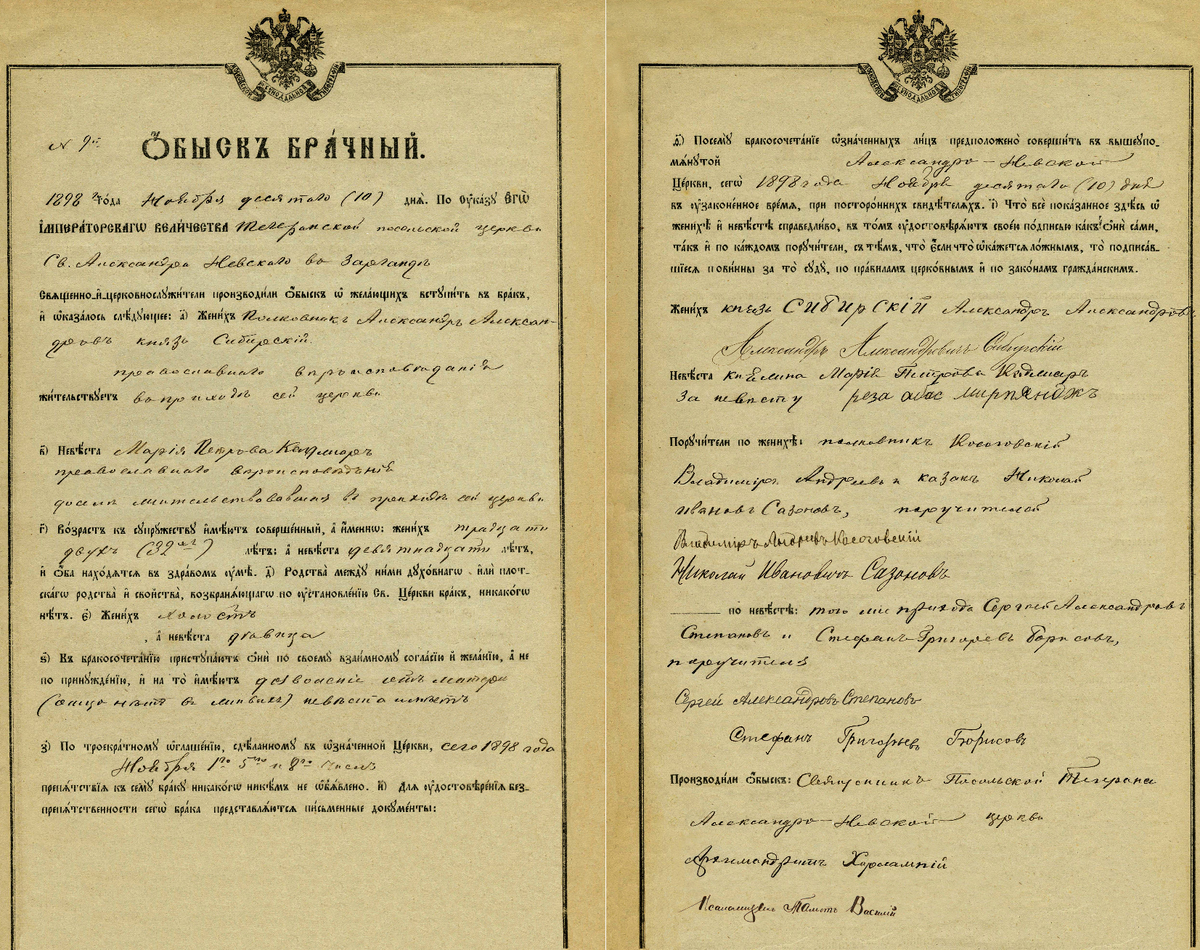 МОСКОВСКОЙ СѴНОДАЛЬНОЙ ТИПОГРАФІИ
N 9й
Ѻ҆БЫСКЪ БРА́ЧНЫЙ.
1898 го́да Ноября десятаго (10) днѧ̀. По ᲂу҆ка́зу Е҆ГѠ̀
І҆МПЕРА́ТОРСКАГѠ ВЕЛИ́ЧЕСТВА Тегеранской посольской церкви
Св. Александра Невскаго во Заргандѣ
Свѧще́нно-и҆-церковнослꙋжи́тели производи́ли ѻ҆́быскъ ѡ҆ жела́ющихъ встꙋпи́ть въ бра́къ,
и҆ ѡ҆каза́лось слѣ́дꙋющее: а҃) Жени́хъ Полковникъ Александръ Алексан-
дровъ князь Сибирскій.
православнаго вѣроисповѣданія
жи́тельствꙋетъ во приходѣ сей церкви
в҃) Невѣ́ста Марія Петрова
православнаго вѣроисповѣданія
доселѣ жительствовавшая въ приходѣ сей церкви
г҃) Во́зрастъ къ сꙋпрꙋ́жествꙋ и҆мѣ́ютъ соверше́нный, а҆ и҆́меннѡ: жени́хъ тридцати
двухъ (32хъ) лѣ́тъ: а҆ невѣ́ста девятнадцати лѣ́тъ,
и҆ ѻ҆́ба нахо́дѧтсѧ въ здра́вомъ ᲂу҆мѣ̀. д҃) Родства̀ ме́ждꙋ ни́ми дꙋхо́внагѡ и҆лѝ пло́т-
скагѡ родства̀ и҆ сво́йства, возбранѧ́ющагѡ по ᲂу҆становле́нію Св. Це́ркви бра́къ, никако́гѡ
нѣ́тъ. є҃) Жени́хъ холостъ
, а҆ невѣ́ста дѣвица
ѕ҃) Къ бракосочета́нію пристꙋпа́ютъ ѻ҆нѝ по своемꙋ̀ взаи́мномꙋ согла́сію и҆ жела́нію, а҆ не
по принꙋжде́нію, и҆ на то̀ и҆мѣ́ютъ дозволеніе отъ матери
(отца нѣтъ въ живыхъ) невѣста имѣетъ
з҃) По троекра́тномꙋ ѡ҆глаше́нію, сдѣ́ланномꙋ въ ѡ҆зна́ченной Це́ркви, сего 1898 года
Ноября 1го 5го и 8го числъ
препѧ́тствїѧ къ семꙋ̀ бра́кꙋ никако́гѡ никѣ́мъ не ѡ҆б̾ѧ́влено. и҃) Для ᲂу҆достовѣре́нїѧ без-
препѧ́тственности сегѡ̀ бра́ка представлѧ́ютсѧ пи́сьменные докꙋме́нты:
МОСКОВСКОЙ СѴНОДАЛЬНОЙ ТИПОГРАФІИ
ѳ҃) Посемꙋ̀ бракосочета́нїе ѡ҆зна́ченныхъ ли́цъ предполо́жено соверши́ть въ вышеꙋпо-
мѧ́нꙋтой Александро-Невской
Це́ркви, сегѡ̀ 1898 года Ноября десятаго (10) дня
въ ᲂу҆зако́ненное вре́мѧ, при посторо́ннихъ свидѣ́телѧхъ. і҃) Что̀ всѐ пока́занное здѣ́сь ѡ҆
женихѣ̀ и҆ невѣ́стѣ справедли́во, въ то́мъ ᲂу҆достовѣрѧ́ютъ свое́ю по́дписью ка́къ ѻ҆нѝ са́ми,
та́къ и҆ по ка́ждомъ порꙋчи́тели, съ тѣ́мъ, что̀ є҆́сли что̀ ѡ҆ка́жетсѧ ло́жнымъ, то̀ подписа́в-
шїесѧ пови́нны за то̀ сꙋдꙋ̀, по пра́виламъ церко́внымъ и҆ по зако́намъ гражда́нскимъ.
Жени́хъ князь СИБИРСКІЙ Александръ Александровъ
Александръ Александровичъ Сибирскій
Невѣ́ста Марія Петрова
За невѣсту реза абас мирпянджъ
Порꙋчи́тели по женихѣ̀: полковникъ Косоговскій
Владиміръ Андреевъ и казакъ Николай
Ивановъ Сазоновъ, поручители
Владиміръ Андреевъ Косоговскій
Николай Ивановичъ Сазоновъ
по невѣ́стѣ: того же прихода Сергѣй Александровъ
Степановъ и Стефанъ Григорьевъ Борисовъ,
поручители
Сергей Александровъ Степановъ
Стефанъ Григорьевъ Борисовъ
Производи́ли ѻ҆́быскъ: Священникъ Посольской Тегеранс
Александро-Невской церкви
Архимандритъ Харлампій
Псаломщикъ Василій